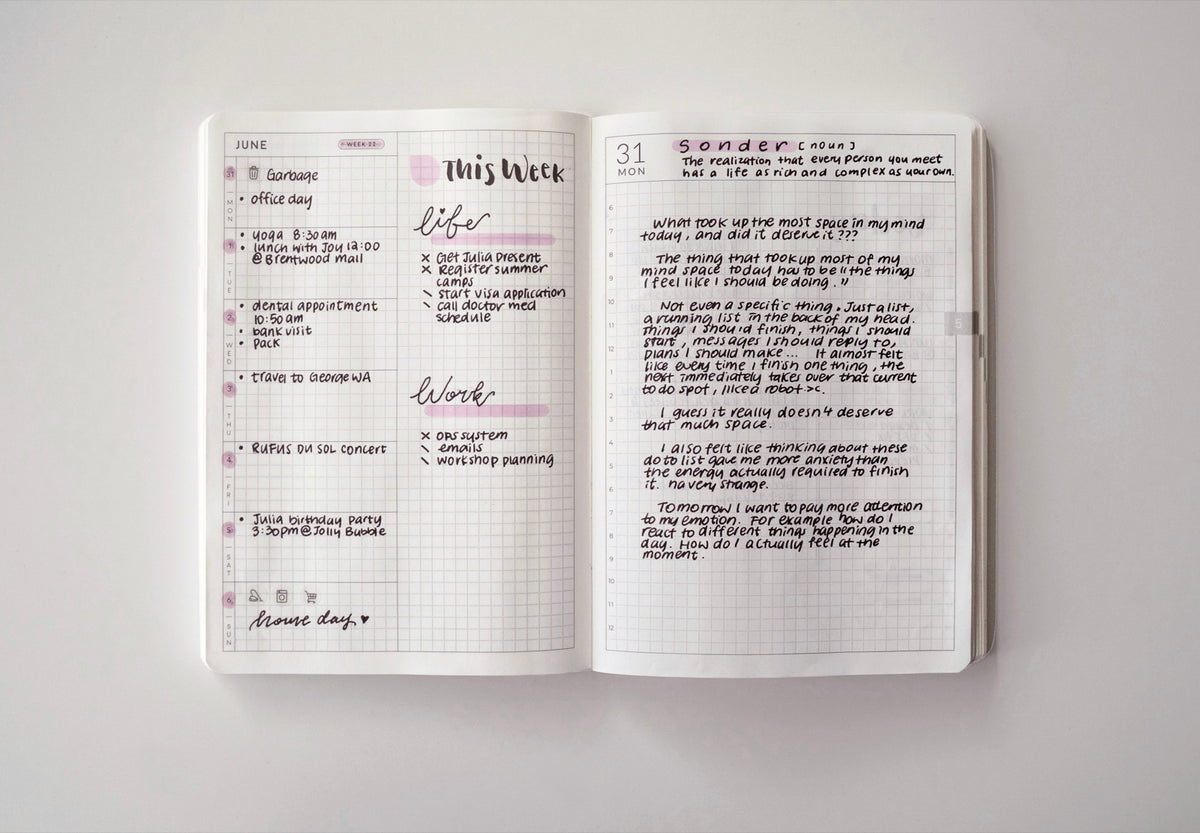 JUNE
WEEK 22
31
Garbage
MON
• office day
1
• yoga 8:30am
• lunch with Joy 12:00
@ Brentwood mall
TUE
2
• dental appointment
10:50am
• bank visit
• pack
WED
3
• travel to George WA
THU
4
• RUFUS DU SOL concert
FRI
5
• Julia birthday party
3:30pm @ Jolly Bubble
SAT
6
house day ♥
SUN
This Week
life
x Get Julia Present
x Register summer
camps
\ start visa application
\ call doctor med
schedule
Work
x ops system
\ emails
\ workshop planning
31
MON
Sonder [noun]
The realization that every person you meet
has a life as rich and complex as your own.
6
7
8
9
10
11
12
1
2
3
4
5
6
7
8
9
10
11
12
What took up the most space in my mind
today, and did it deserve it???
The thing that took up most of my
mind space today has to be "the things
I feel like I should be doing."
Not even a specific thing. Just a list,
a running list in the back of my head.
Things I should finish, things I should
start, messages I should reply to,
plans I should make... It almost felt
like every time I finish one thing, the
next immediately takes over that current
to do spot, like a robot >c.
I guess it really doesn4 deserve
that much space.
I also felt like thinking about these
do to list gave me more anxiety than
the energy actually required to finish
it. na very strange.
Tomorrow I want to pay more attention
to my emotion. For example how do I
react to different things happening in the
day. How do I actually feel at the
moment.
5